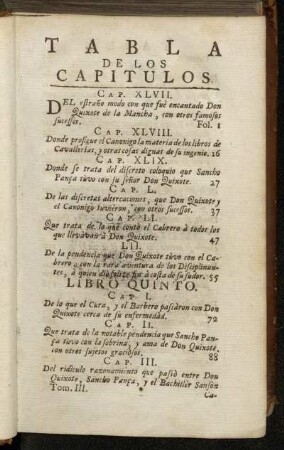 TABLA
DE LOS
CAPITULOS.
CAP. XLVII.
DEL estraño modo con que fuè encantado Don
Quixote de la Mancha, con otros famosos
sucessos. Fol. 1
CAP. XLVIII.
Donde prosigue el Canonigo la materia de los libros de
Cavallerias, y otras cosas dignas de su ingenio. 16
CAP. XLIX.
Donde se trata del discreto coloquio que Sancho
Pança tuvo con su señor Don Quixote. 27
CAP. L.
De las discretas altercaciones, que Don Quixote y
el Canonigo tuvieron, con otros sucessos. 37
CAP. LI.
Que trata de lo que contò el Cabrero à todos los
que llevavan à Don Quixote. 47
LII.
De la pendencia que Don Quixote tuvo con el Ca-
brero, con la rara aventura de los Disciplinan-
tes, à quien diò felize fin à costa de su sudor. 55
LIBRO QUINTO.
CAP. I.
De lo que el Cura, y el Barbero passaron con Don
Quixote cerca de su enfermedad. 72
CAP. II.
Que trata de la notable pendencia que Sancho Pan-
ça tuvo con la sobrina, y ama de Don Quixote,
con otros sujetos graciosos. 88
CAP. III.
Del ridiculo razonamiento que passò entre Don
Quixote, Sancho Pança, y el Bachiller Sanson
Tom. III. * Ca-